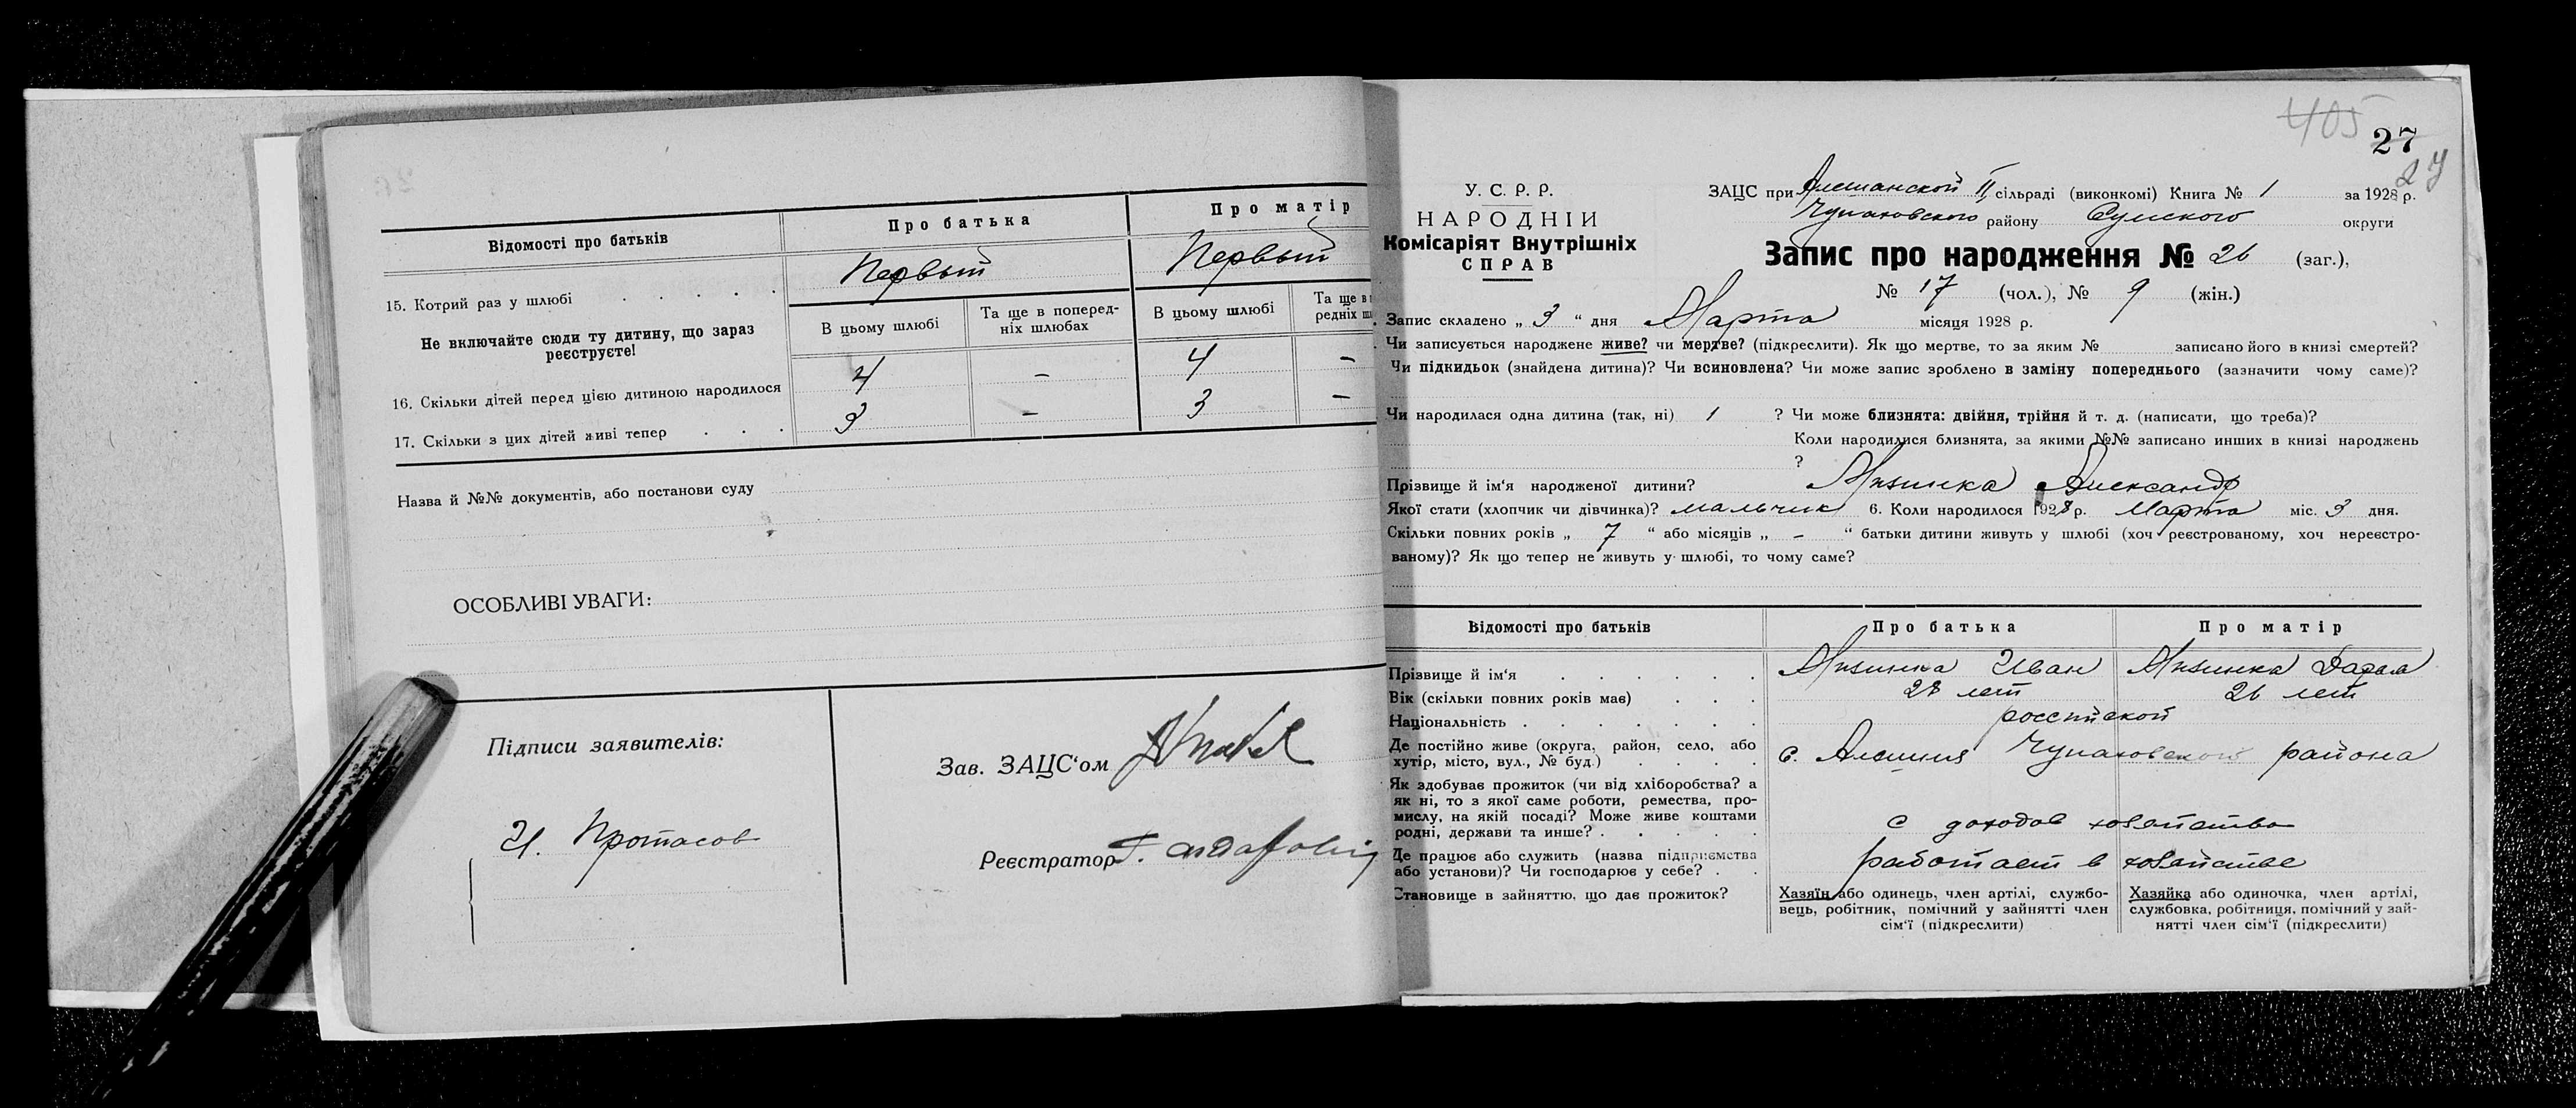 Відомості про батьків
Про батька
Про матір
15. Котрий раз у шлюбі
Первый
Первый
Не включайте сюди ту дитину, що зараз
реєструєте!
В цьому шлюбі
Та ще в поперед-
ніх шлюбах
В цьому шлюбі
Та ще в
редніх
16. Скільки дітей перед цією дитиною народилося
4
–
4
–
17. Скільки з цих дітей живі тепер
3
–
3
–
Назва й №№ документів, або постанови суду
ОСОБЛИВІ УВАГИ:
Підписи заявителів:
И. Протасов
Зав. ЗАЦС‘ом
Реєстратор
405
27
27
У. С. Р. Р.
НАРОДНІЙ
Комісаріят Внутрішніх
СПРАВ
ЗАЦС при Алешанской II сільраді (виконкомі) Книга № 1 за 1928 р.
Чупаховского району Сумского округи
Запис про народження № 26 (заг.),
№ 17 (чол.), № 9 (жін.)
Запис складено „ 3 “ дня Марта місяця 1928 р.
Чи записується народжене живе? чи мертве? (підкреслити). Як що мертве, то за яким № записано його в книзі смертей?
Чи підкидьок (знайдена дитина)? Чи всиновлена? Чи може запис зроблено в заміну попереднього (зазначити чому саме)?
Чи народилася одна дитина (так, ні) 1 ? Чи може близнята: двійня, трійня й т. д. (написати, що треба)?
Коли народилися близнята, за якими №№ записано инших в книзі народжень
?
Прізвище й ім‘я народженої дитини? Александр
Якої стати (хлопчик чи дівчинка)? мальчик 6. Коли народилося 1928 р. Марта міс. 3 дня.
Скільки повних років „ 7 “ або місяців „ – “ батьки дитини живуть у шлюбі (хоч реєстрованому, хоч нереєстро-
ваному)? Як що тепер не живуть у шлюбі, то чому саме?
Відомості про батьків
Про батька
Про матір
Прізвище й ім‘я
Иван
Вік (скільки повних років має)
28 лет
26 лет
Національність
российской
Де постійно живе (округа, район, село, або
хутір, місто, вул., № буд.)
с. Алешня Чупаховского района
Як здобуває прожиток (чи від хліборобства? а
як ні, то з якої саме роботи, ремества, про-
мислу, на якій посаді? Може живе коштами
родні, держави та инше?
с доходов хозяйства
Де працює або служить (назва підприємства
або установи)? Чи господарює у себе?
работает в хозяйстве
Становище в зайняттю, що дає прожиток?
Хазяїн або одинець, член артілі, службо-
вець, робітник, помічний у зайнятті член
сім‘ї (підкреслити)
Хазяйка або одиночка, член артілі,
службовка, робітниця, помічний у зай-
нятті член сім‘ї (підкреслити)